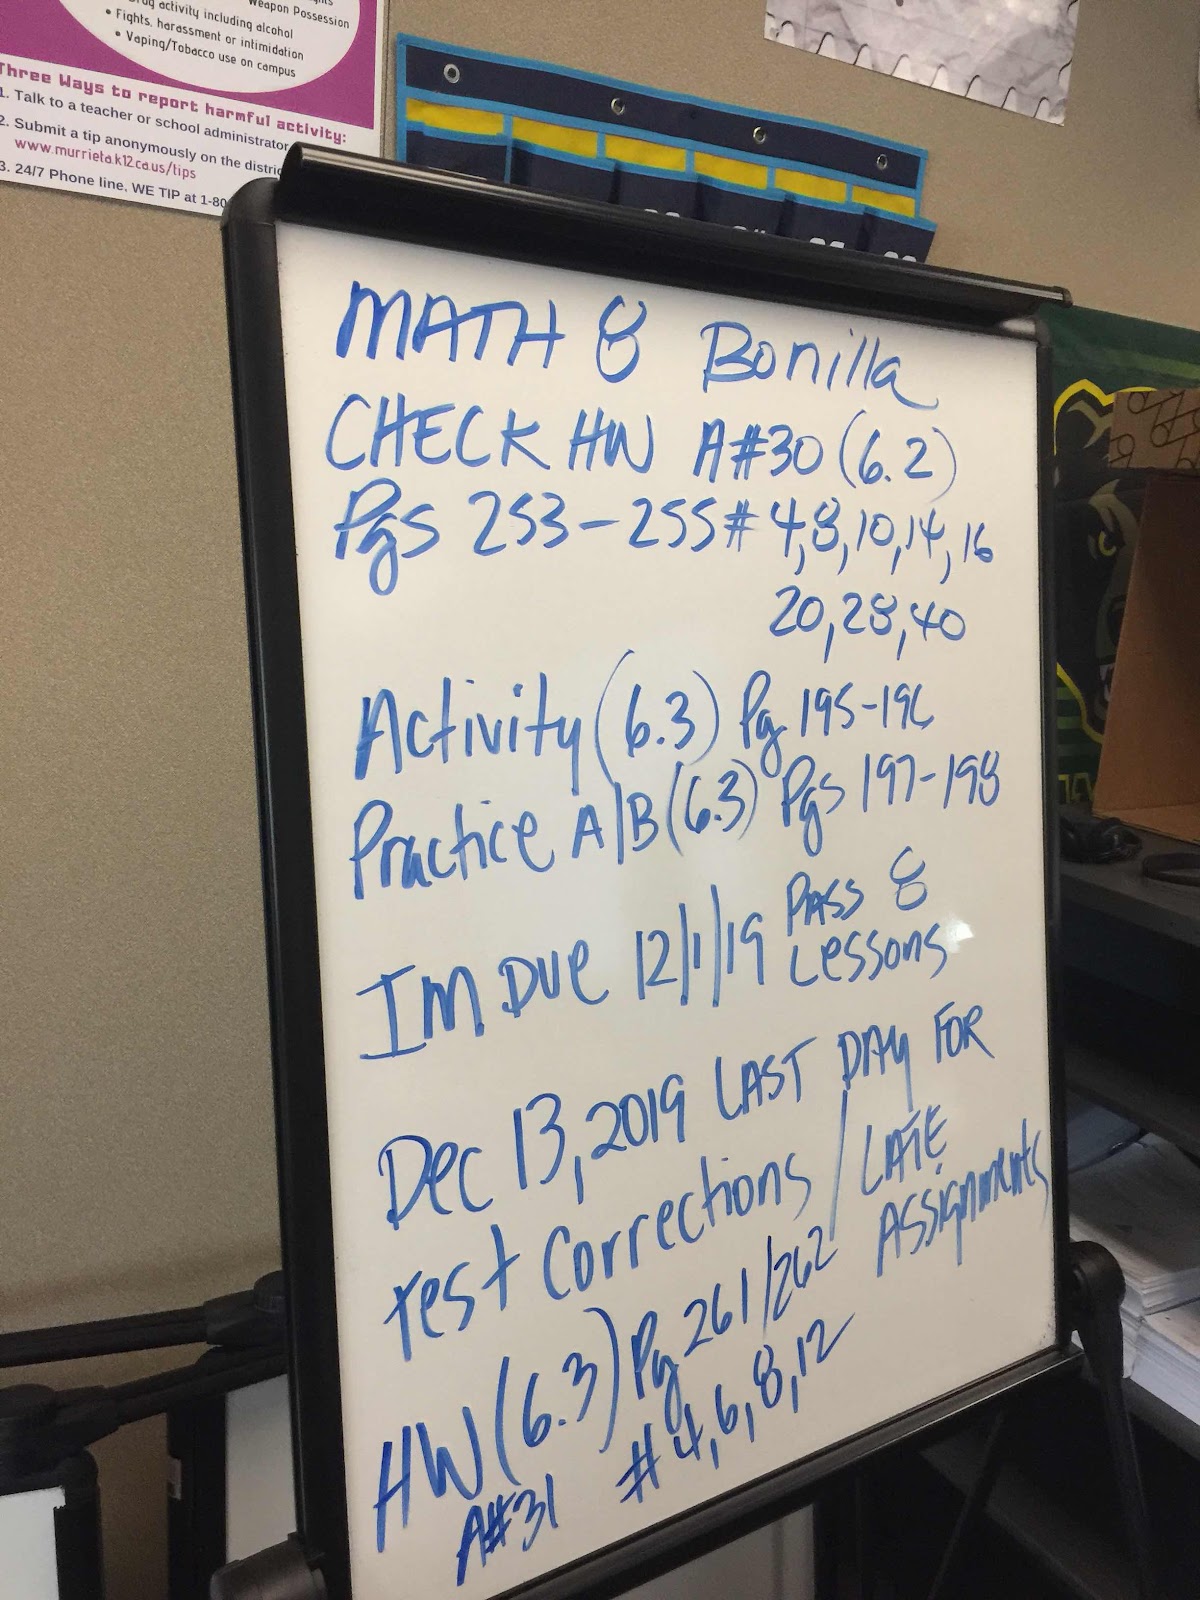 Weapon Possession
activity including alcohol
• Fights, harassment or intimidation
• Vaping/Tobacco use on campus
Three Ways to report harmful activity:
1. Talk to a teacher or school administrator
2. Submit a tip anonymously on the distric
www.murrieta.k12.ca.us/tips
3. 24/7 Phone line, WE TIP at 1-80
MATH 8 Bonilla
CHECK HW A#30 (6.2)
Pgs 253-255 # 4,8,10,14,16
20,28,40
Activity (6.3) Pg 195-196
Practice A/B (6.3) Pgs 197-198
IM DUE 12/1/19 PASS 8
Lessons
Dec 13, 2019 LAST DAY FOR
test Corrections / LATE
Assignments
HW (6.3) Pg 261/262
A#31 # 4,6,8,12